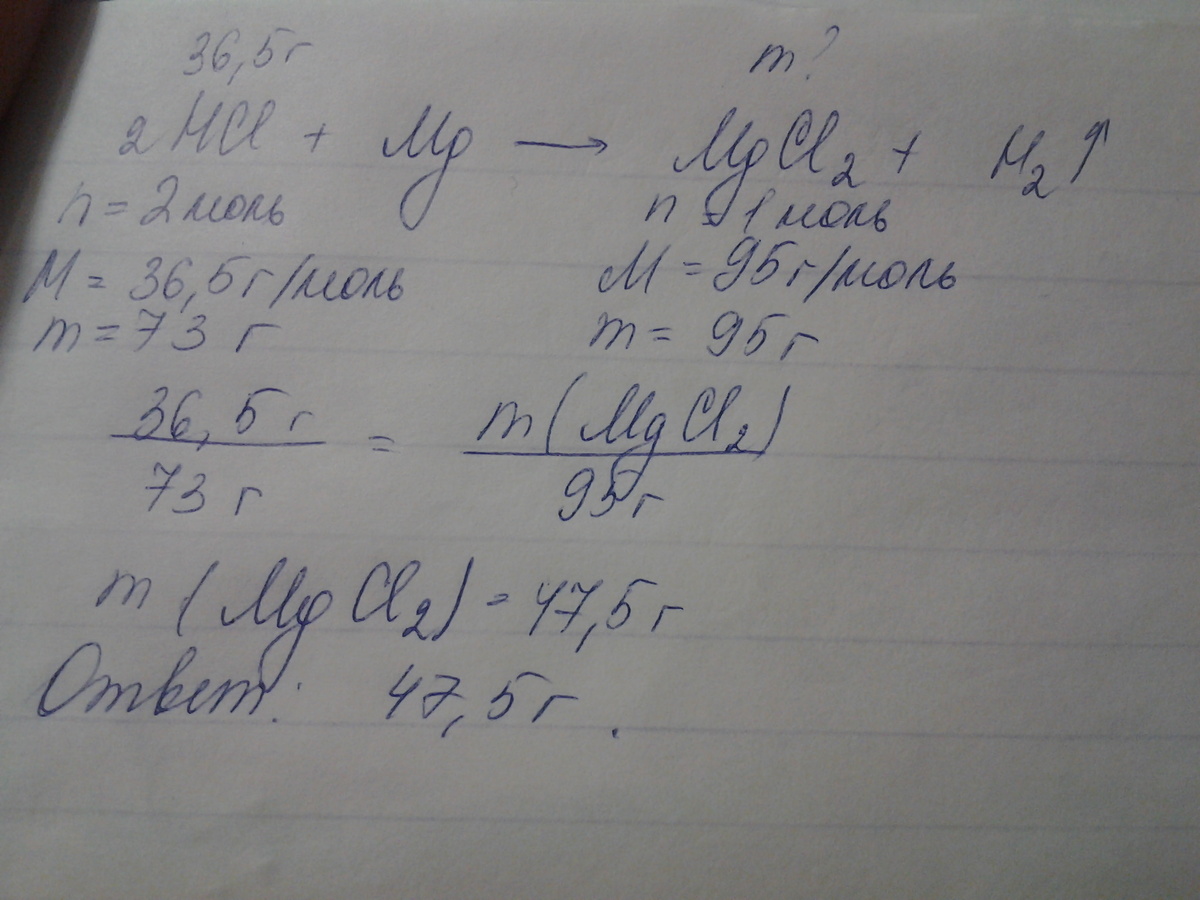 36,5г m?
2HCl + Mg → MgCl₂ + H₂↑
n = 2 моль n = 1 моль
M = 36,5 г/моль M = 95 г/моль
m = 73 г m = 95 г
36,5 г = m(MgCl₂)
73 г 95 г
m (MgCl₂) = 47,5 г
Ответ: 47,5 г.